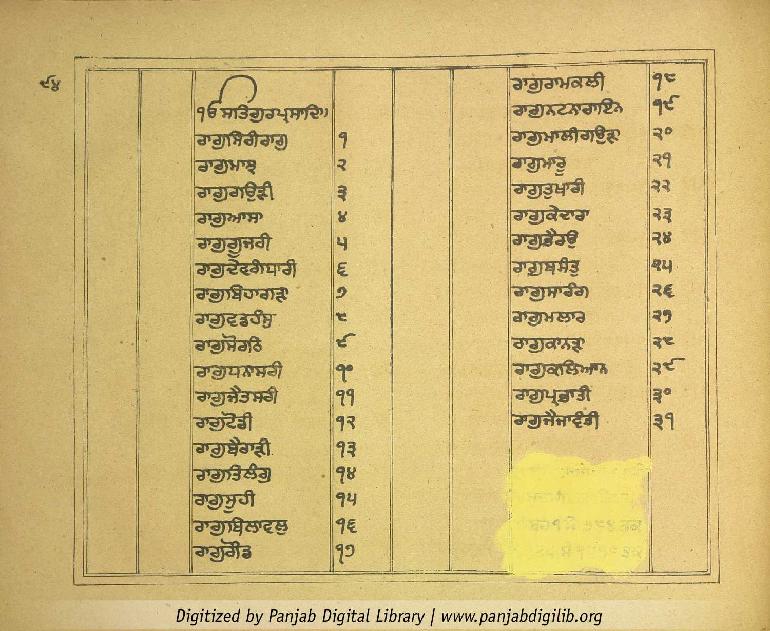 ੯੪
ੴ ਸਤਿਗੁਰਪ੍ਰਸਾਦਿ॥
ਰਾਗੁਸਿਰੀਰਾਗੁ ੧
ਰਾਗੁਮਾਝ ੨
ਰਾਗੁਗਉੜੀ ੩
ਰਾਗੁਆਸਾ ੪
ਰਾਗੁਗੂਜਰੀ ੫
ਰਾਗੁਦੇਵਗੰਧਾਰੀ ੬
ਰਾਗੁਬਿਹਾਗੜਾ ੭
ਰਾਗੁਵਡਹੰਸੁ ੮
ਰਾਗੁਸੋਰਠਿ ੯
ਰਾਗੁਧਨਾਸਰੀ ੧੦
ਰਾਗੁਜੈਤਸਰੀ ੧੧
ਰਾਗੁਟੋਡੀ ੧੨
ਰਾਗੁਬੈਰਾੜੀ ੧੩
ਰਾਗੁਤਿਲੰਗ ੧੪
ਰਾਗੁਸੂਹੀ ੧੫
ਰਾਗੁਬਿਲਾਵਲੁ ੧੬
ਰਾਗੁਗੌਂਡ ੧੭
ਰਾਗੁਰਾਮਕਲੀ ੧੮
ਰਾਗੁਨਟਨਾਰਾਇਨ ੧੯
ਰਾਗੁਮਾਲੀਗਉੜਾ ੨੦
ਰਾਗੁਮਾਰੂ ੨੧
ਰਾਗੁਤੁਖਾਰੀ ੨੨
ਰਾਗੁਕੇਦਾਰਾ ੨੩
ਰਾਗੁਭੈਰਉ ੨੪
ਰਾਗੁਬਸੰਤੁ ੨੫
ਰਾਗੁਸਾਰੰਗ ੨੬
ਰਾਗੁਮਲਾਰ ੨੭
ਰਾਗੁਕਾਨੜਾ ੨੮
ਰਾਗੁਕਲਿਆਨ ੨੯
ਰਾਗੁਪ੍ਰਭਾਤੀ ੩੦
ਰਾਗੁਜੈਜਾਵੰਤੀ ੩੧
Digitized by Panjab Digital Library | www.panjabdigilib.org